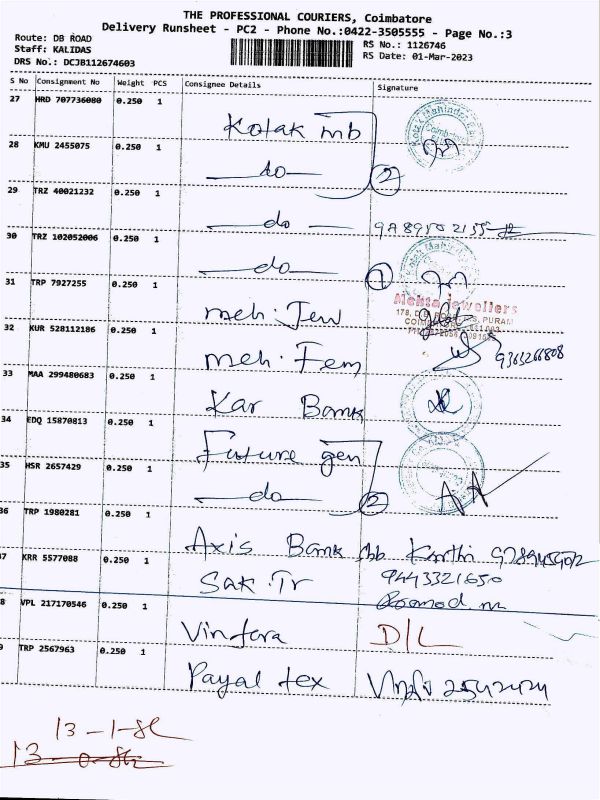 THE PROFESSIONAL COURIERS, Coimbatore
Delivery Runsheet - PC2 - Phone No.:0422-3505555 - Page No.:3
Route: DB ROAD
Staff: KALIDAS
DRS No.: DCJB112674603
RS No.: 1126746
RS Date: 01-Mar-2023
S No Consignment No Weight PCS Consignee Details Signature
27 HRD 707736080 0.250 1 Kotak mb
28 KMU 2455075 0.250 1 do 2
29 TRZ 40021232 0.250 1 do
30 TRZ 102052006 0.250 1 do 1
31 TRP 7927255 0.250 1 meh. Jew
Mehta Jewellers
32 KUR 528112186 0.250 1 meh. Fem 9363266808
33 MAA 299480683 0.250 1 Kar Bank
34 EDQ 15870813 0.250 1 Future gen
35 HSR 2657429 0.250 1 do 2
36 TRP 1980281 0.250 1 Axis Bank
37 KRR 5577088 0.250 1 Sak. Tr 9443321650
8 VPL 217170546 0.250 1 Vinfora D/L
9 TRP 2567963 0.250 1 Payal tex 2542424